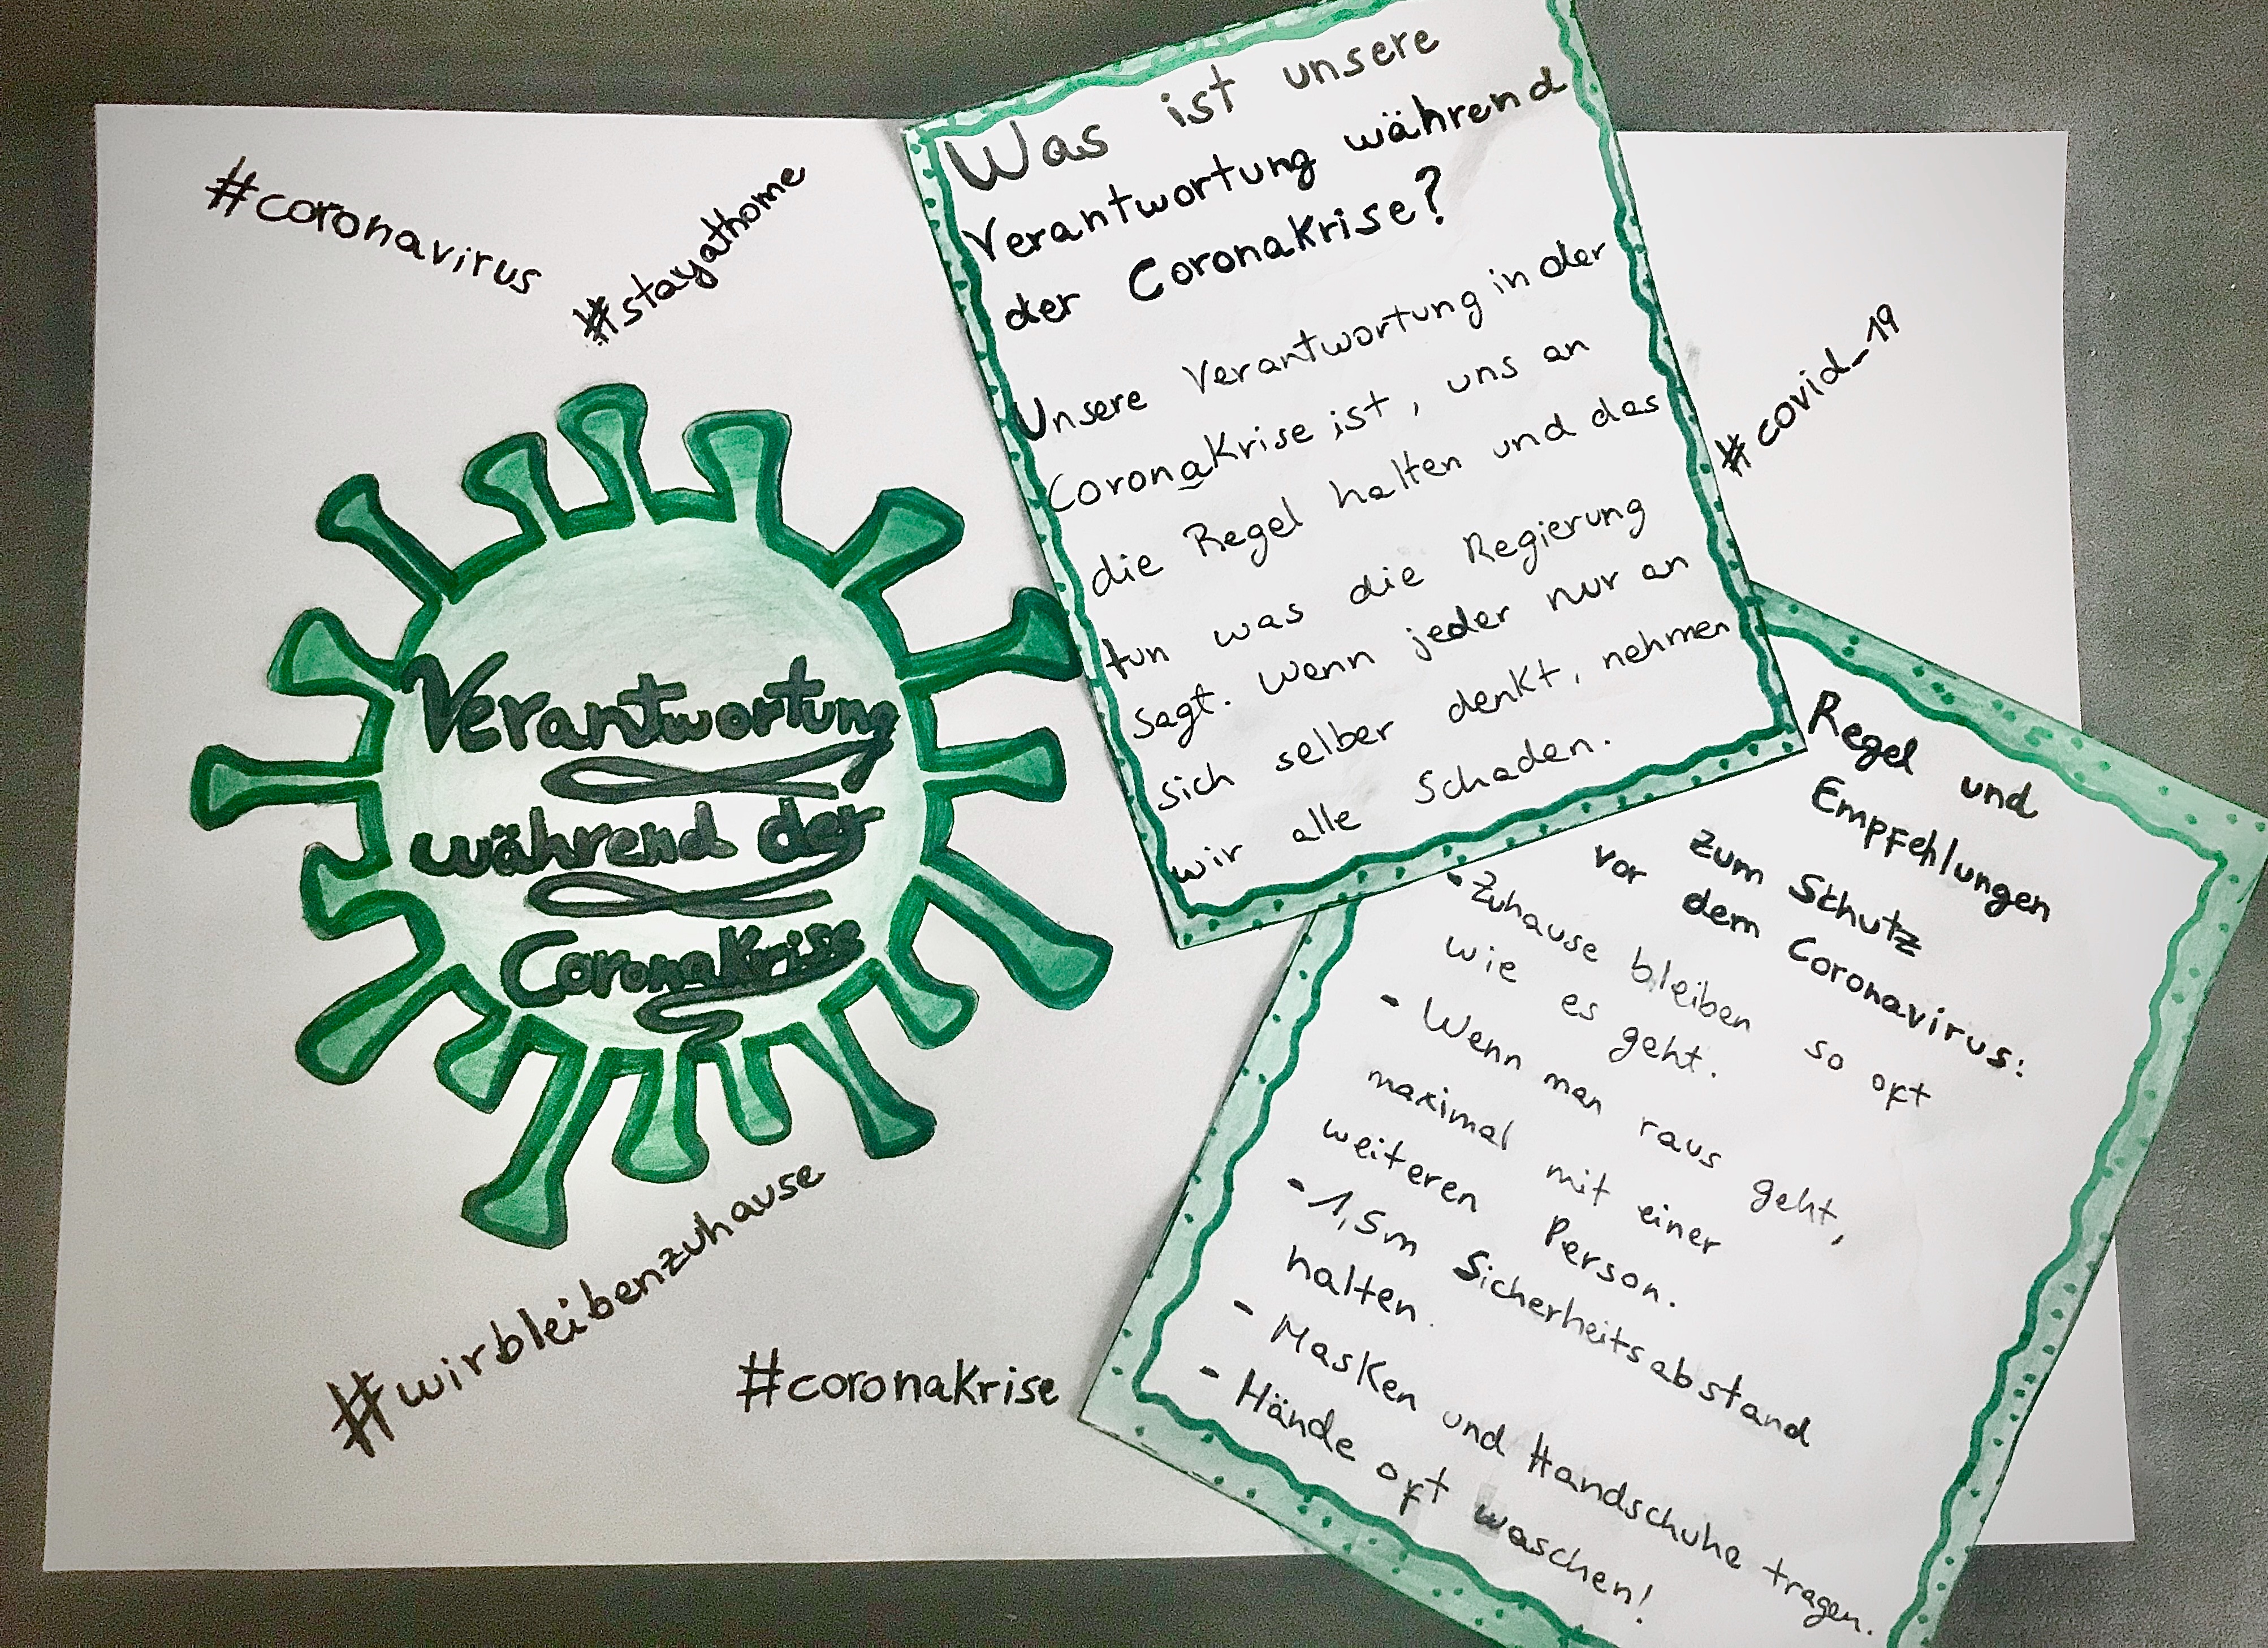 #coronavirus
#stayathome
Verantwortung
während der
Coronakrise
#wirbleibenzuhause
#coronakrise
Was ist unsere
Verantwortung während
der Coronakrise?
Unsere Verantwortung in der
Coronakrise ist, uns an
die Regel halten und das
tun was die Regierung
sagt. Wenn jeder nur an
sich selber denkt, nehmen
wir alle Schaden.
#covid_19
Regel und
Empfehlungen
zum Schutz
vor dem Coronavirus:
- Zuhause bleiben so oft
wie es geht.
- Wenn man raus geht,
maximal mit einer
weiteren Person.
- 1,5m Sicherheitsabstand
halten.
- Masken und Handschuhe tragen.
- Hände oft waschen!